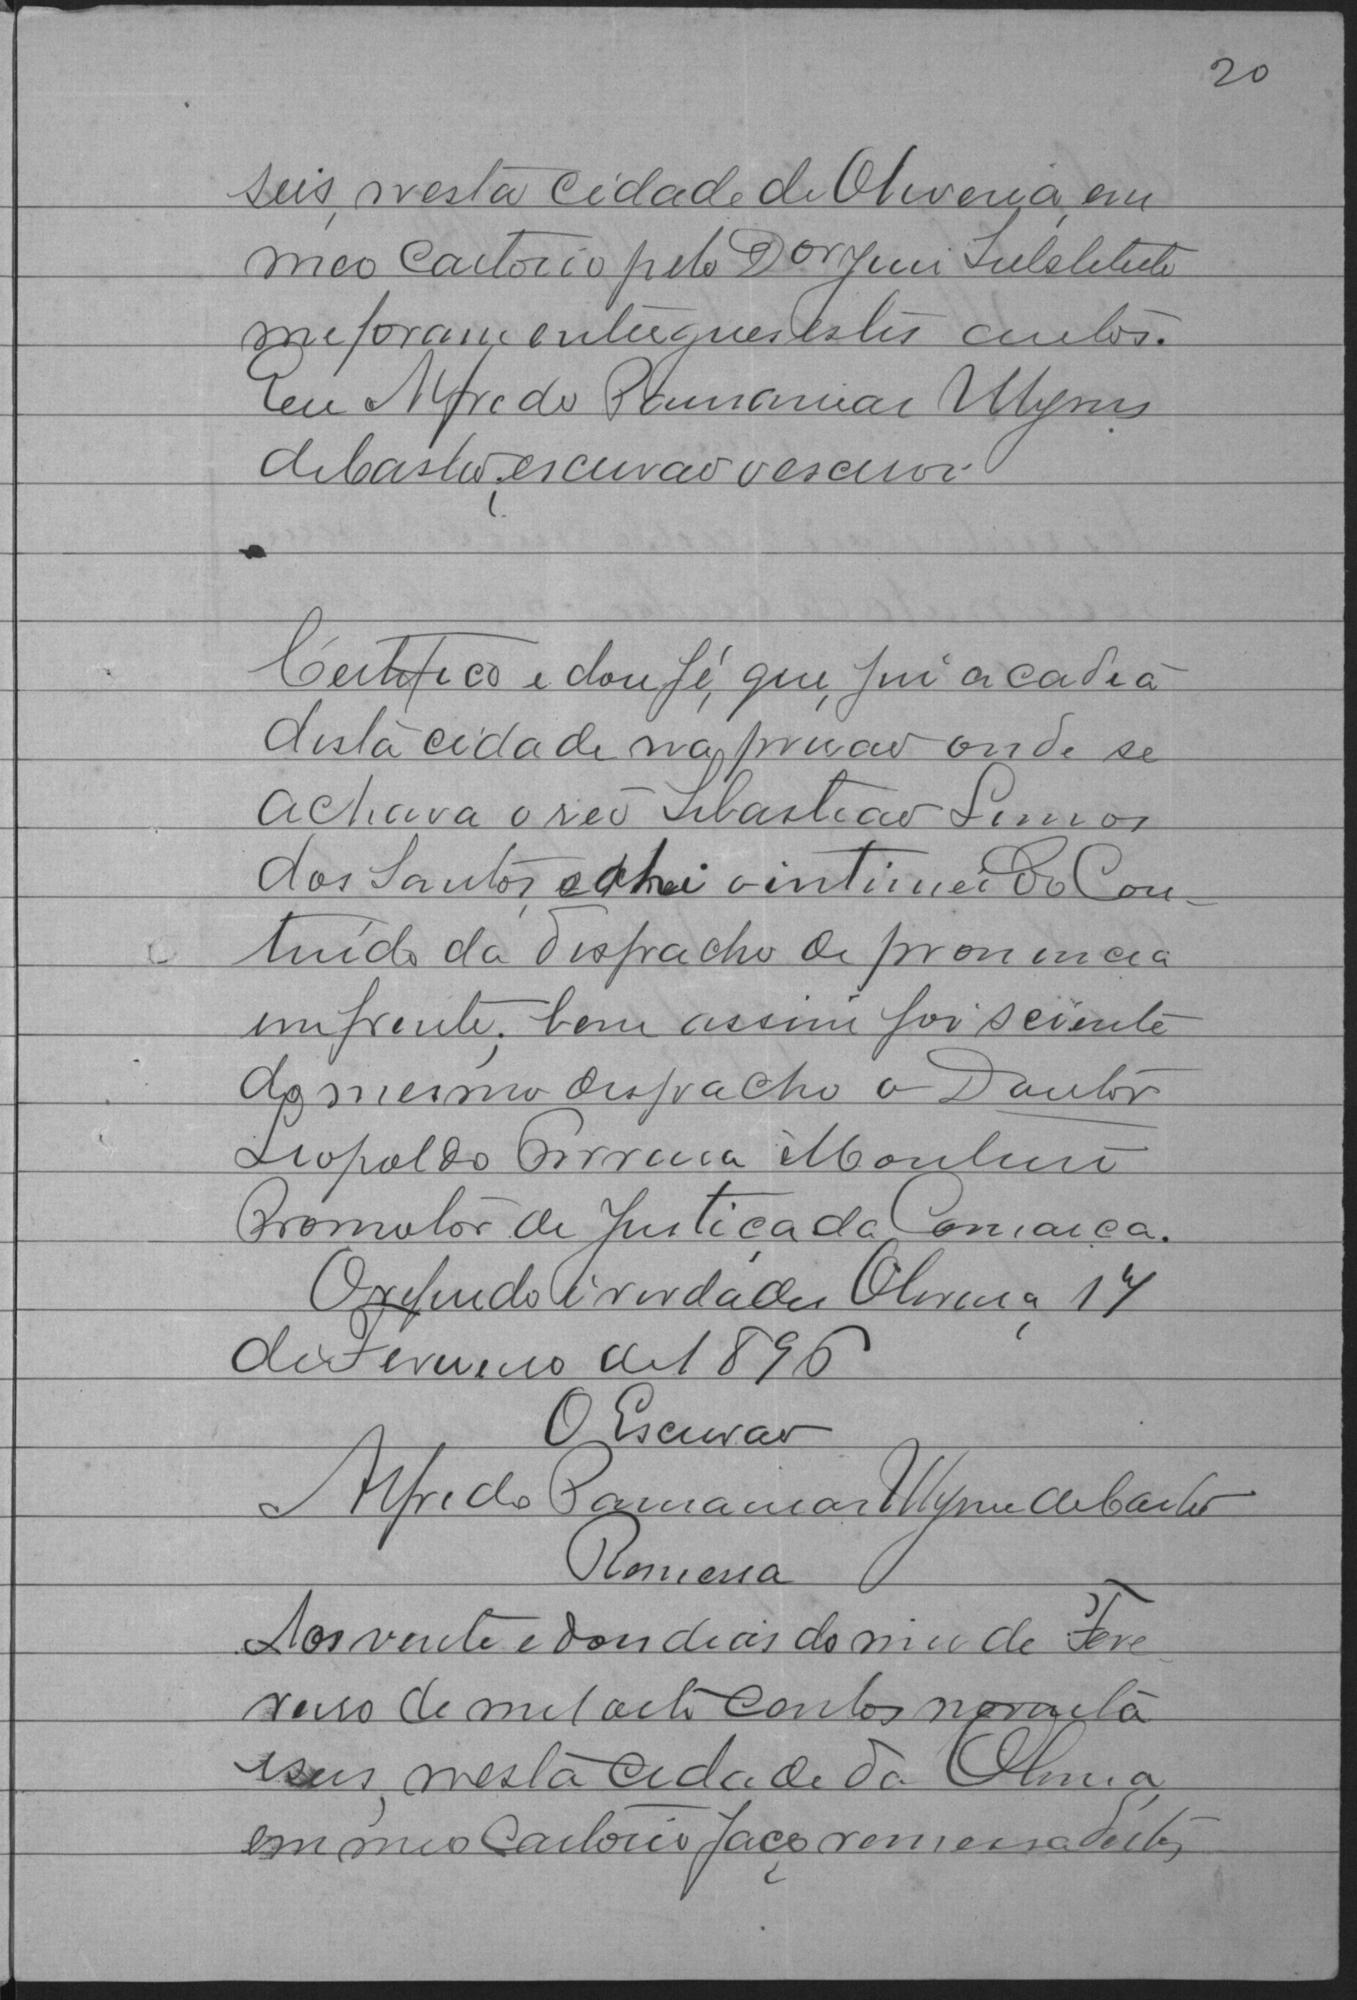 20
seis, nesta cidade de Oliveira, em
meo Cartorio pelo Dor Juis Substituto
me foram entregues estes autos.
Eu Alfredo Panamar Ulyses
de Castro, escrivao o escrevi.
Certifico e dou fé, que, fui a cadeia
desta cidade na prisao onde se
achava o reo Sebastiao Lemos
dos Santos, e ahi o intimei do Con-
teúdo da despacho de pronuncia
em frente; bem assim foi sciente
do mesmo despacho o Doutor
Leopoldo Correia Monteiro
Promotor de Justiça da Comarca.
O referido é verdade. Oliveira, 17
de Fevereiro de 1896
O Escrivao
Alfredo Panamar de Castro
Remessa
Aos vinte e dous dias do mes de Feve-
reiro de mil oito centos noventa
e seis, nesta cidade da Oliveira,
em meo Cartorio faço remessa destes